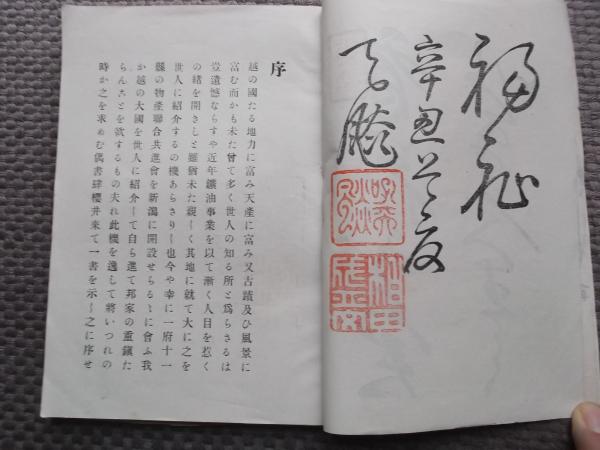 福祉
辛丑
序
越の國たる地力に富み天產に富み又古蹟及ひ風景に
富む而かも未た曾て多く世人の知る所と爲らさるは
豈遺憾ならすや近年鑛油事業を以て漸く人目を惹く
の緖を開きしと雖猶未た親しく其地に就て大に之を
世人に紹介するの機あらさりし也今や幸に一府十一
縣の物產聯合共進會を新潟に開設せらるゝに會ふ我
か越の大國を世人に紹介して自ら進て邦家の重鎭た
らんことを欲するもの夫れ此機を逸して將いつれの
時か之を求めむ偶書肆櫻井来て一書を示し之に序せ